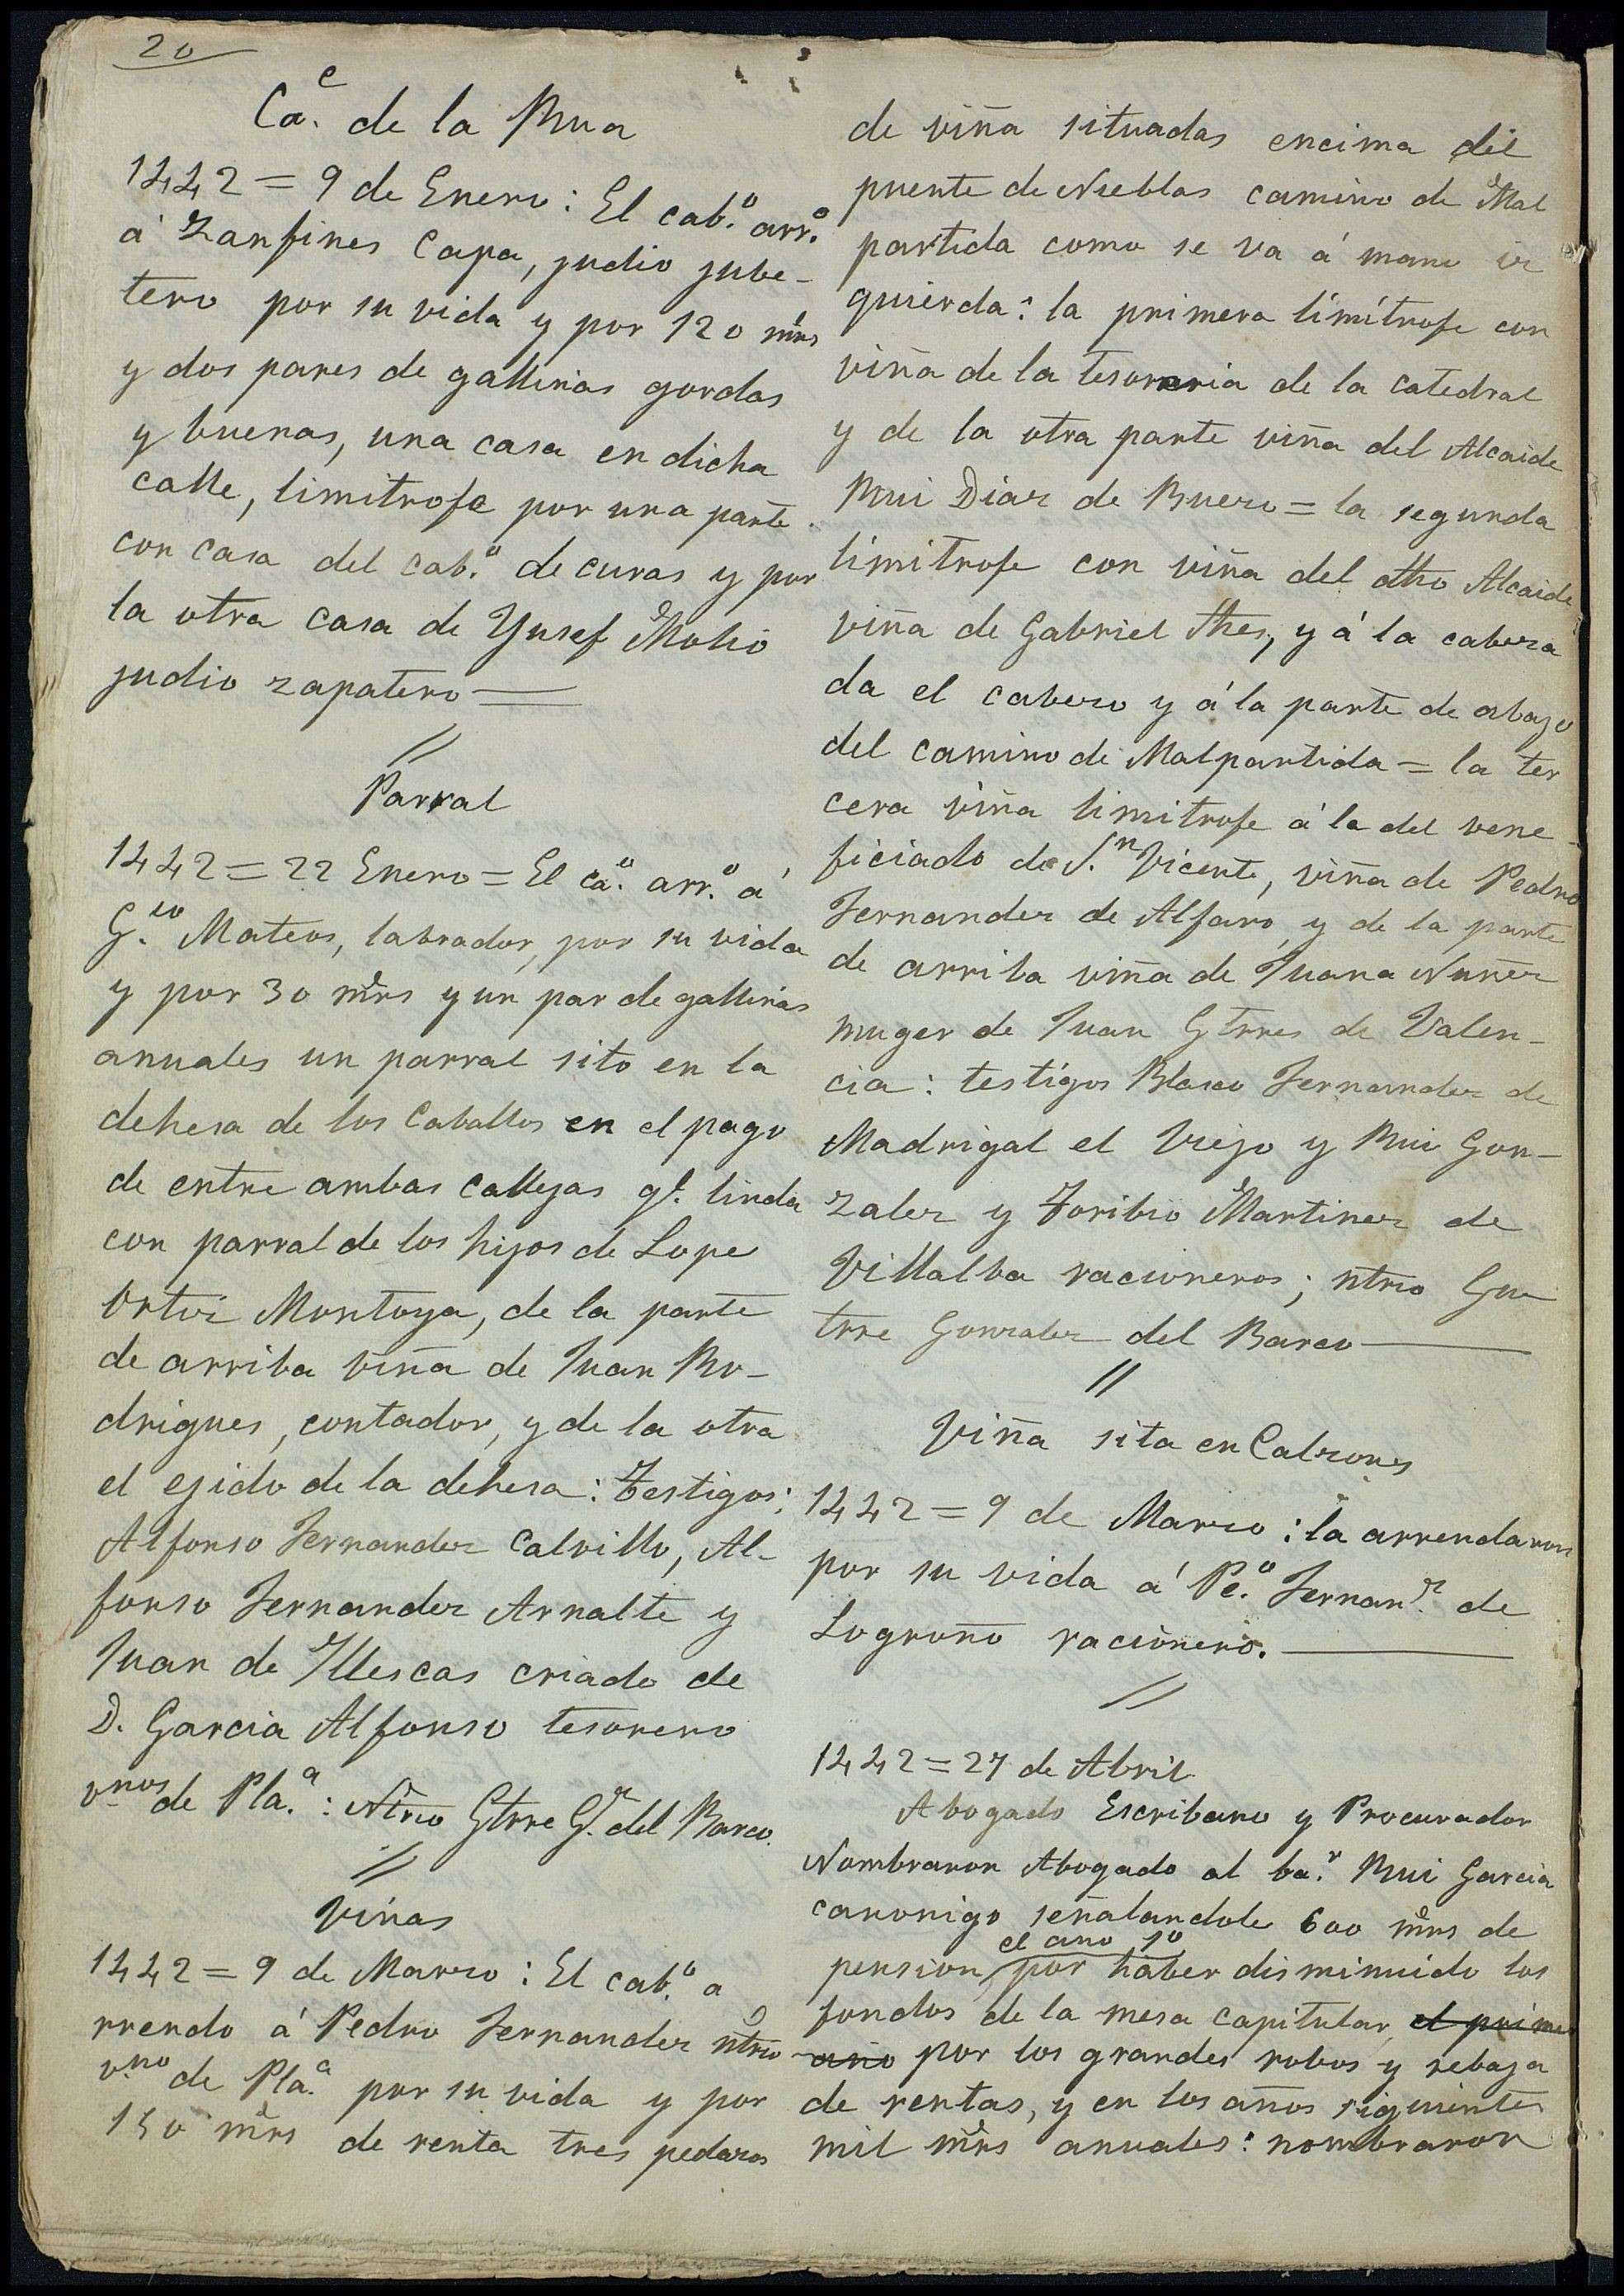 20
Ca.e de la Rua
1442 = 9 de Enero: El cab.o arr.o
á Zanfines Capa, judio jube-
tero por su vida y por 120 mrs
y dos pares de gallinas gordas
y buenas, una casa en dicha
calle, limitrofe por una parte
con casa del cab.o de curas y por
la otra casa de Yusef Molho
judio zapatero —
//
Parral
1442 = 22 Enero = El ca.o arr.o á
G.lo Mateos, labrador, por su vida
y por 30 mrs y un par de gallinas
anuales un parral sito en la
dehesa de los Caballos en el pago
de entre ambas callejas q.e linda
con parral de los hijos de Lope
Ortiz Montoya, de la parte
de arriba viña de Juan Ro-
drigues, contador, y de la otra
el egido de la dehesa: Testigos:
Alfonso Fernandez Calvillo, Al-
fonso Fernandez Arnalte y
Juan de Illescas criado de
D. Garcia Alfonso tesorero
v.nos de Pla.a: Ntrio Gtrre G.z del Barco.
//
Viñas
1442 = 9 de Marzo: El cab.o a
rrendo á Pedro Fernandez ntrio
v.no de Pla.a por su vida y por
150 mrs de renta tres pedazos
de viña situadas encima del
puente de Nieblas camino de Mal
partida como se va á mano iz
quierda: la primera limítrofe con
viña de la tesoreria de la catedral
y de la otra parte viña del Alcaide
Rui Diaz de Buezo = la segunda
limitrofe con viña del dho Alcaide
viña de Gabriel Ths, y á la cabeza
da el cabezo y á la parte de abajo
del camino de Malpartida = la ter
cera viña limitrofe á la del vene
ficiado de S.n Vicente, viña de Pedro
Fernandez de Alfaro, y de la parte
de arriba viña de Juana Nuñez
muger de Juan Gtrres de Valen-
cia: testigos Blasco Fernandez de
Madrigal el Viejo y Rui Gon-
zalez y Toribio Martinez de
Villalba racioneros; ntrio Gu
trre Gonzalez del Barco —
//
Viña sita en Calzones
1442 = 9 de Marzo: la arrendaron
por su vida á Pe.o Fernan.z de
Logroño racionero. —
//
1442 = 27 de Abril
Abogado Escribano y Procurador
Nombraron Abogado al ba.r Rui Garcia
canonigo señalandole 600 mrs de
el año 1o
pension, por haber disminuido los
fondos de la mesa capitular, el primer
año por los grandes robos y rebaja
de rentas, y en los años siguientes
mil mrs anuales: nombraron